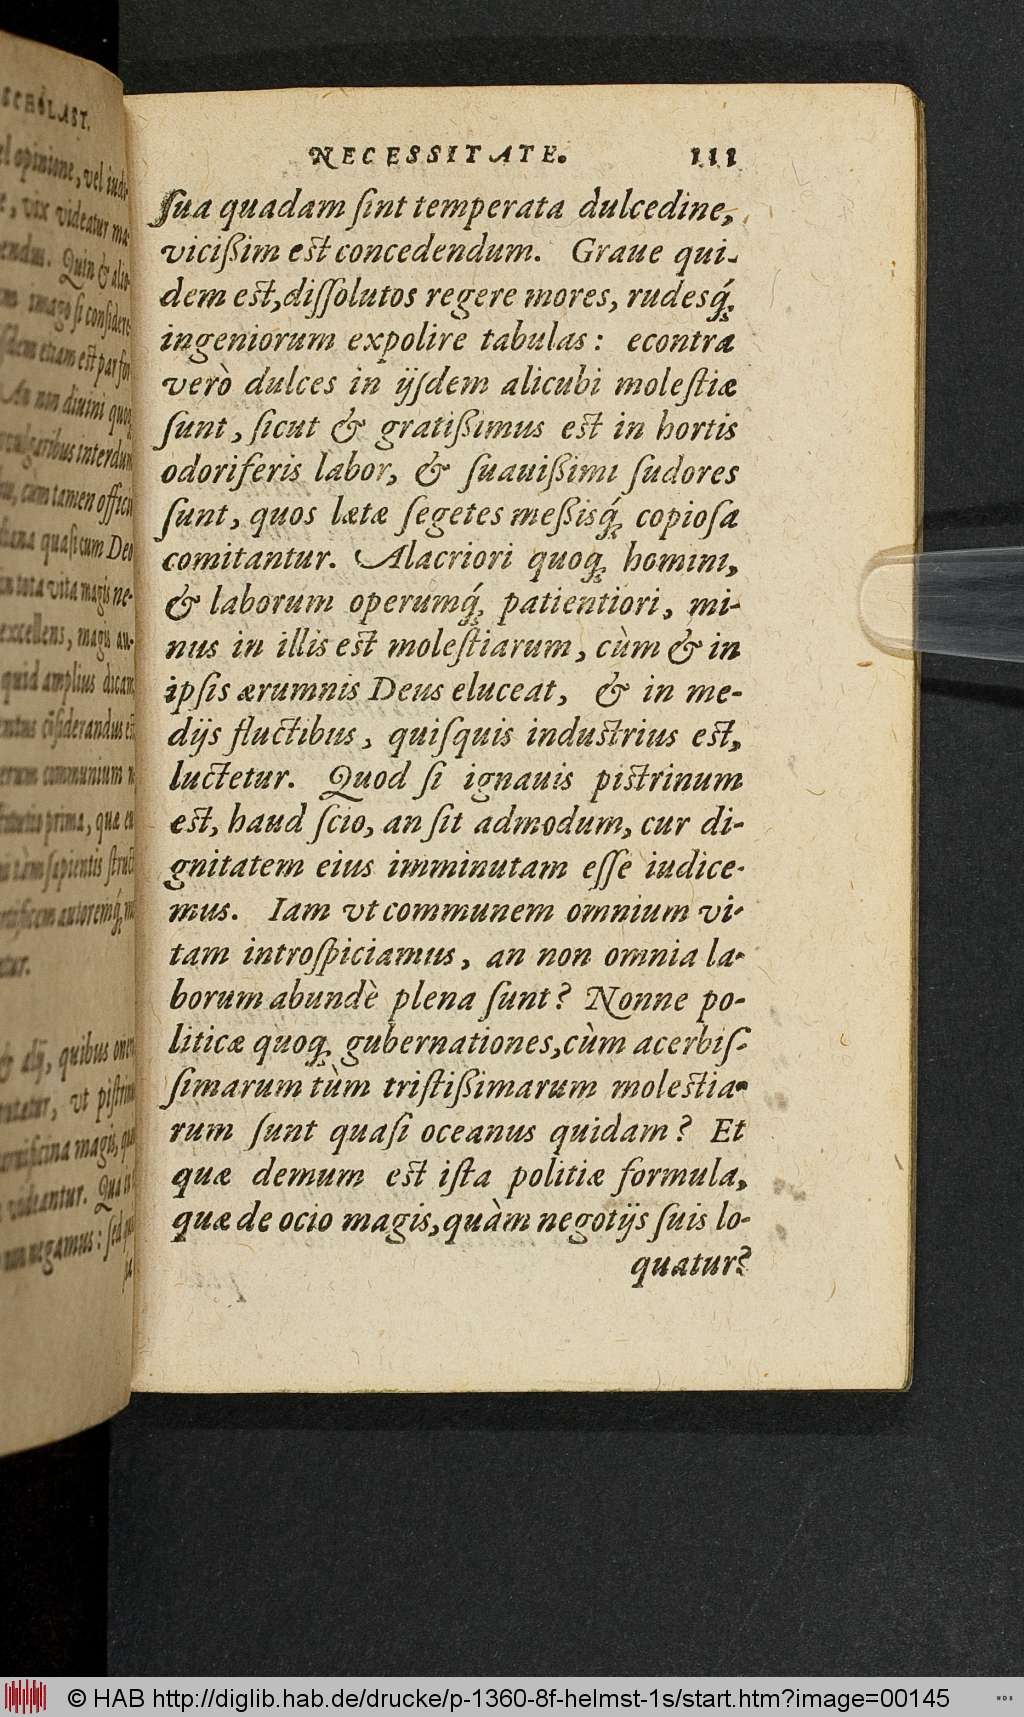 SCHOLAST.
el opinione, vel iudi-
e, vix videatur ma-
endum. Quin & alio-
imago si consideres
etiam est par for
An non diuini quoq;
vulgaribus interdum
cum tamen offici
quasi cum Deo
in tota vita magis ne-
excellens, magis au-
quid amplius dicam
cōsiderandus est
erum communium
prima, quæ
tam sapientis
autoremq́;
tur.
& dij, quibus
vt pistrin
magis, qua
videantur. Qua
non negamus: sed
NECESSITATE. 111
ſua quadam ſint temperata dulcedine,
viciſsim est concedendum. Graue qui-
dem est, diſſolutos regere mores, rudesq́;
ingeniorum expolire tabulas: econtra
verò dulces in ijſdem alicubi moleſtiæ
ſunt, ſicut & gratiſsimus est in hortis
odoriferis labor, & ſuauiſsimi ſudores
ſunt, quos lætæ ſegetes meſsisq́; copioſa
comitantur. Alacriori quoq; homini,
& laborum operumq́; patientiori, mi-
nus in illis est moleſtiarum, cùm & in
ipſis ærumnis Deus eluceat, & in me-
dijs fluctibus, quiſquis industrius est,
luctetur. Quod ſi ignauis pistrinum
est, haud ſcio, an ſit admodum, cur di-
gnitatem eius imminutam eſſe iudice-
mus. Iam vt communem omnium vi-
tam introſpiciamus, an non omnia la-
borum abundè plena ſunt? Nonne po-
liticæ quoq; gubernationes, cùm acerbiſ-
ſimarum tùm triſtiſsimarum molestia-
rum ſunt quaſi oceanus quidam? Et
quæ demum est iſta politiæ formula,
quæ de ocio magis, quàm negotijs ſuis lo-
quatur?
© HAB http://diglib.hab.de/drucke/p-1360-8f-helmst-1s/start.htm?image=00145